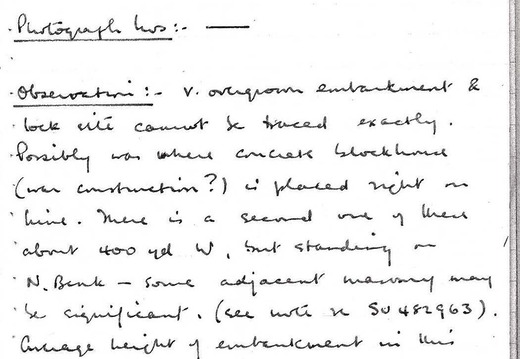 Photograph Nos:- —
Observation:- V. overgrown embankment &
lock site cannot be traced exactly.
Possibly was where concrete blockhouse
(war construction?) is placed right on
line. There is a second one of these
about 400 yd W, but standing on
N. Bank – some adjacent masonry may
be significant. (see note re SU 482963).
Average height of embankment in this